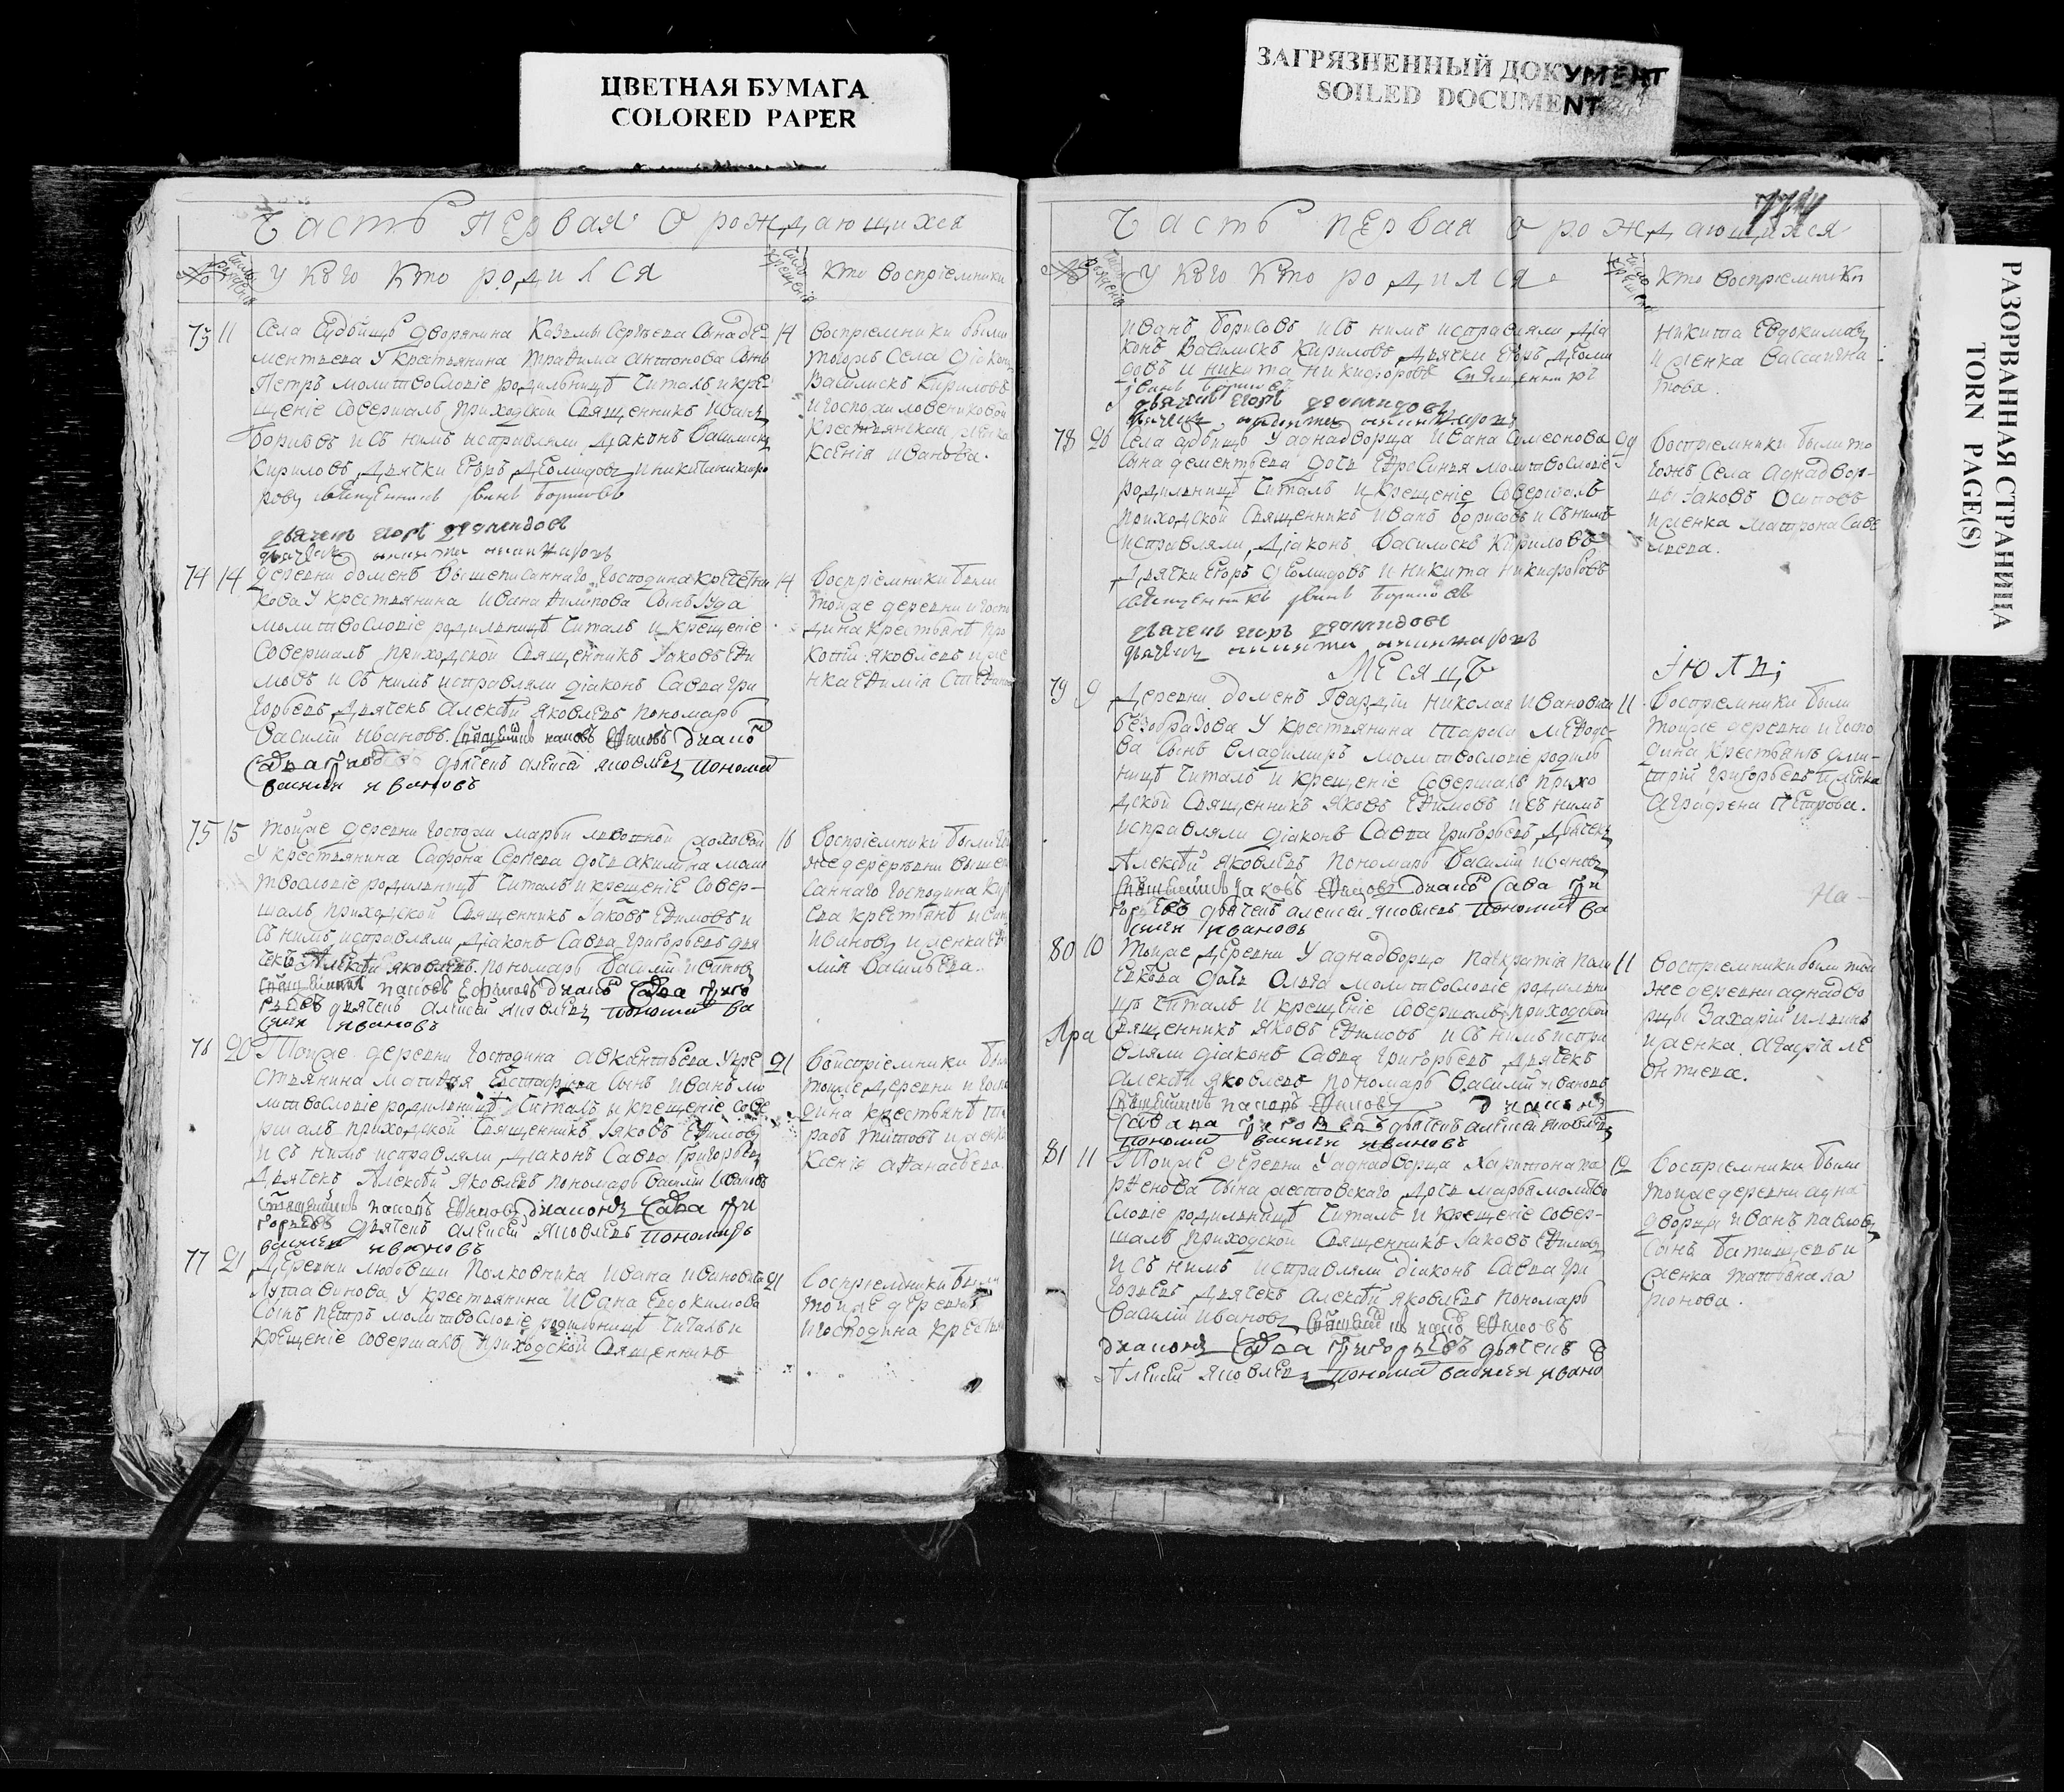 ЦВЕТНАЯ БУМАГА
COLORED PAPER
ЗАГРЯЗНЕННЫЙ ДОКУМЕНТ
SOILED DOCUMENT
РАЗОРВАННАЯ СТРАНИЦА
TORN PAGE(S)
Часть первая о рождающихся
№ У кого кто родился
Кто восприемники
73 11 Села Судбищъ дворянина Козьмы Сергеева сына де-
ментьева у крестьянина Трафима антонова сынъ
Петръ молитвословіе родильницѣ читалъ и кре-
щеніе совершалъ приходской священникъ Иванъ
Борисовъ и съ нимъ исправляли діаконъ Василискъ
Кириловъ, дьячки Егоръ Деомидовъ и никита никифо
ровъ священникъ Іванъ Борисовъ
дьячекъ егоръ деомидовъ
14 восприемники были
тогожъ села діаконъ
Василискъ Кириловъ
и госпожи
крестьянская женка
Ксенія Иванова.
74 14 деревни доменъ вышеписаннаго господина
кова у крестьянина Ивана Филипова сынъ Іуда
молитвословіе родильницѣ читалъ и крещеніе
совершалъ приходской священникъ Іаковъ Ефи
мовъ и съ нимъ исправляли діаконъ Савва Гри
горьевъ, дьячекъ Алексѣй Яковлевъ пономарь
Василій Ивановъ.
дьячекъ алексей яковлевъ
василей ивановъ
14 восприемники были
тойже деревни и госпо
дина крестьянъ про
кофій Яковлевъ и же
нка Ефимія
75 15 тойже деревни госпожи марьи
у крестьянина Сафона Сергеева дочь акилина моли
твословіе родильницѣ читалъ и крещеніе совер-
шалъ приходской священникъ Іаковъ Ефимовъ и
съ нимъ исправляли діаконъ Савва Григорьевъ дья
чекъ Алексѣй Яковлевъ. пономарь Василій Ивановъ
дьячекъ алексей яковлевъ
ивановъ
16 восприемники были
же деревни выше
саннаго господина
ева крестьянъ
Ивановъ и женка
мія Васильева.
76 20 Тойже деревни господина авксентьева у кре
стьянина матвея Евстафіева сынъ Иванъ мо
литвословіе родильницѣ читалъ и крещеніе сове
ршалъ приходской священникъ Іяковъ Ефимовъ
и съ нимъ исправляли діаконъ Савва Григорьевъ
дьячекъ Алексѣй Яковлевъ пономарь Василій Ивановъ
горьевъ дьячекъ алексей яковлевъ пономарь
василей ивановъ
21 восприемники были
тойже деревни и госпо
дина крестьянъ
женка
Ксенія Афанасьева.
77 21 Деревни Любовши Полковника Ивана Ивановича
Лутавинова у крестьянина Ивана Евдокимова
сынъ Петръ молитвословіе родильницѣ читалъ и
крещеніе совершалъ приходской священникъ
21 восприемники были
тойже деревни
и господина крестьян
774
Часть первая о рождающихся
№ У кого кто родился
Кто восприемники
иванъ Борисовъ и съ нимъ исправляли діа
конъ Василискъ Кириловъ дьячки Егоръ Деоми
довъ и никита никифоровъ священникъ
Іванъ Борисовъ
дьячекъ егоръ деомидовъ
никита Евдокимовъ
и женка
това.
78 26 Села судбищъ у аднадворца Ивана
сына дементьева дочь Ефросинья молитвословіе
родильницѣ читалъ и крещеніе совершалъ
приходской священникъ Иванъ Борисовъ и съ нимъ
исправляли діаконъ Василискъ Кириловъ
дьячки Егоръ Деомидовъ и никита никифоровъ
священникъ Іванъ Борисовъ
дьячекъ егоръ деомидовъ
29 восприемники были то
гожъ села аднадвор-
цы Іаковъ Осиповъ
и женка матрона Саве
льева.
Месяцъ Іюль;
79 9 Деревни доменъ гвардіи Николая Ивановича
безобразова у крестьянина тараса мефодь-
ва сынъ Владимиръ молитвословіе родиль
ницѣ читалъ и крещеніе совершалъ прихо
дской священникъ Яковъ Ефимовъ и съ нимъ
исправляли діаконъ Савва Григорьевъ, дьячекъ
Алексѣй Яковлевъ пономарь Василій Ивановъ
горьевъ дьячекъ алексей яковлевъ
ивановъ
11 восприемники были
тойже деревни и госпо
дина крестьянъ дми-
трій Григорьевъ и женка
аграфена Петрова.
На-
80 10 Тойже деревни у аднадворца Панкратія Поли
дочь Ольга молитвословіе родильни
цѣ читалъ и крещеніе совершалъ приходской
священникъ Яковъ Ефимовъ и съ нимъ испра
вляли діаконъ Савва Григорьевъ, дьячекъ
Алексѣй Яковлевъ пономарь Василій Ивановъ
василей ивановъ
11 восприемники были той
же деревни аднадво
рцы Захарій Ильинъ
и женка ле
онтьева.
81 11 Тойже деревни у аднадворца Харитона па
рфенова сына дочь марья молитво
словіе родильницѣ читалъ и крещеніе совер-
шалъ приходской священникъ Іаковъ Ефимовъ
и съ нимъ исправляли діаконъ Савва Гри
горьевъ дьячекъ Алексѣй Яковлевъ пономарь
Василій Ивановъ
діаконъ Савва Григорьевъ дьячекъ
Алексей Яковлевъ
12 восприемники были
тойже деревни адна
дворцы Иванъ Павловъ
сынъ батищевъ и
женка татьяна